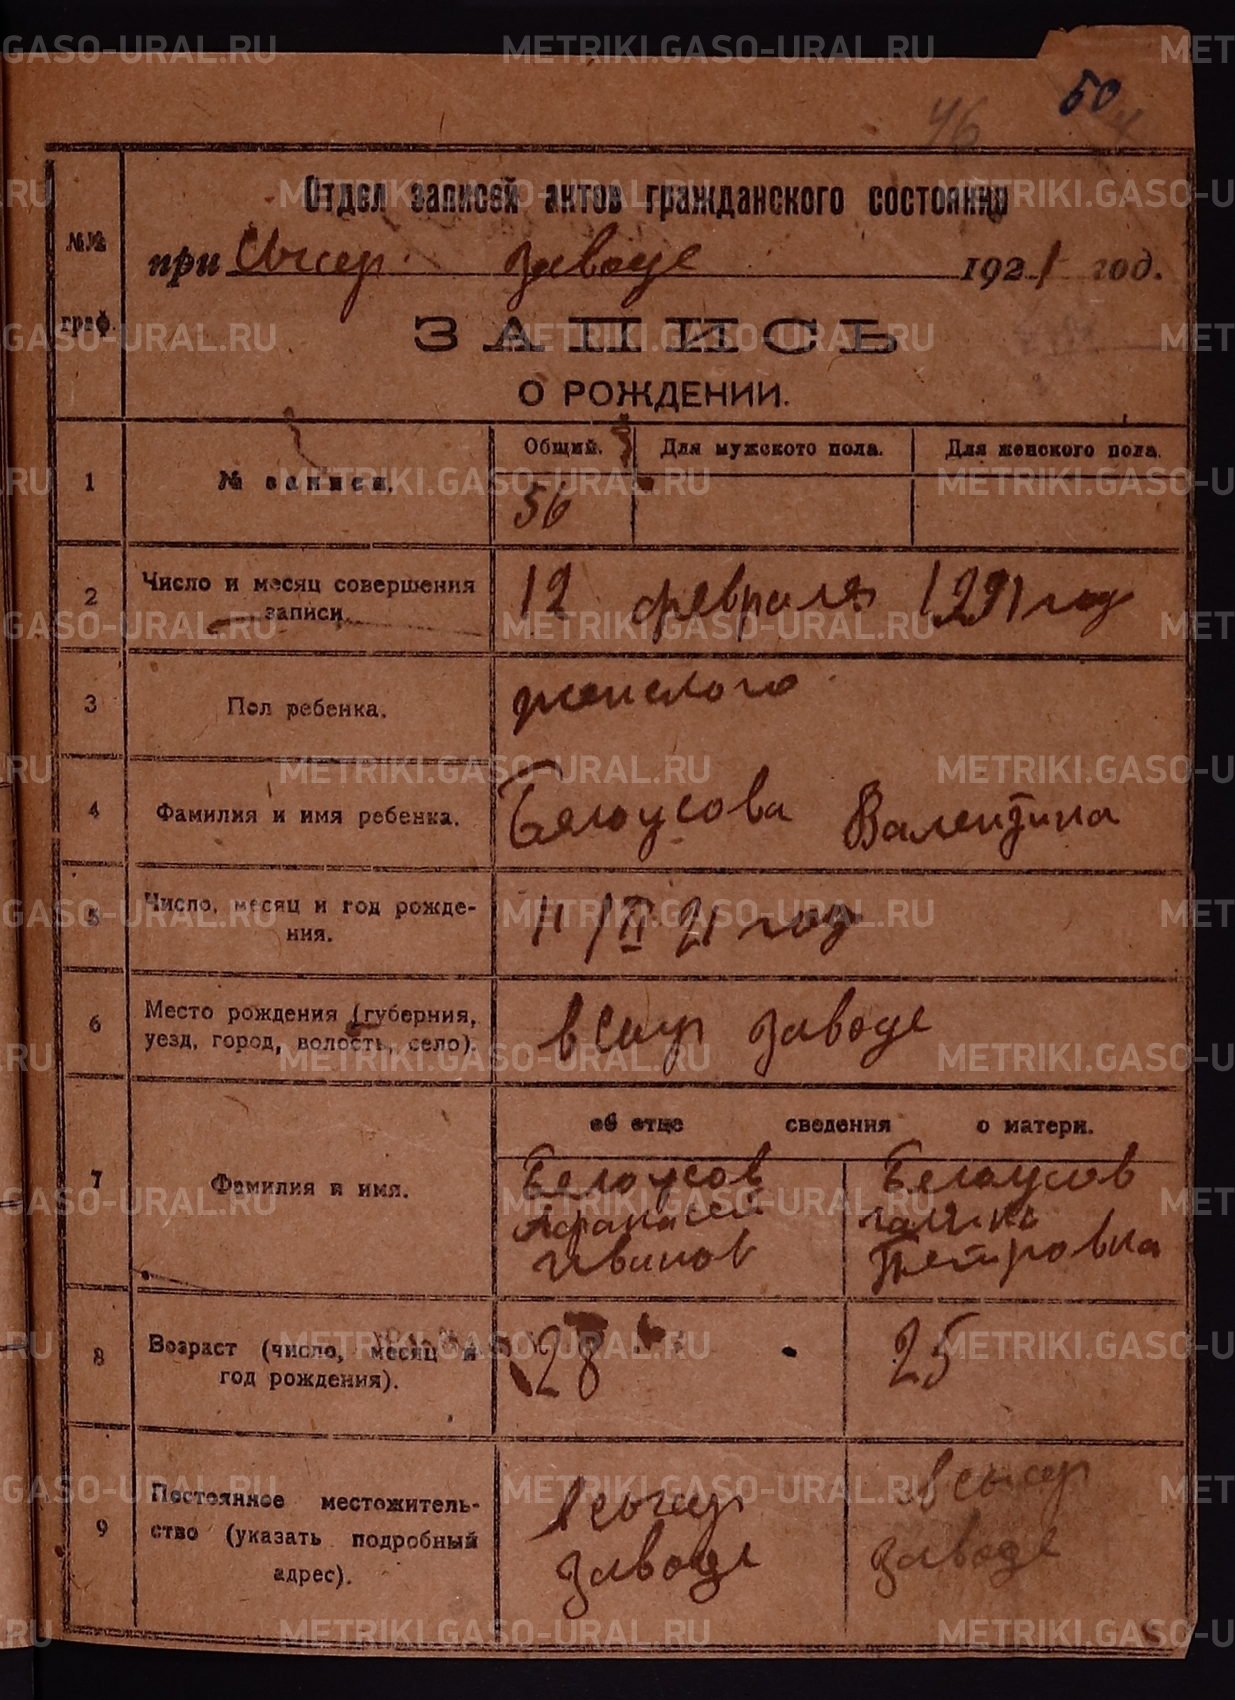 50
46
Отдел записей актов гражданского состояния
при Сысер. заводе 1921 год.
№№ граф.
ЗАПИСЬ
О РОЖДЕНИИ.
1 № записи. Общий. Для мужского пола. Для женского пола.
56
2 Число и месяц совершения записи. 12 февраля 1921 год
3 Пол ребенка. женского
4 Фамилия и имя ребенка. Белоусова Валентина
5 Число, месяц и год рожде-
ния. 11/II 21 год
6 Место рождения (губерния,
уезд, город, волость, село). в Сыср заводе
об отце сведения о матери.
7 Фамилия и имя.
Белоусов Белоусов
Афанасей
Иванов Петровна
8 Возраст (число, месяц и
год рождения). 28 25
9 Постоянное местожитель-
ство (указать подробный
адрес).
в Сысер в Сысер
заводе заводе
METRIKI.GASO-URAL.RU